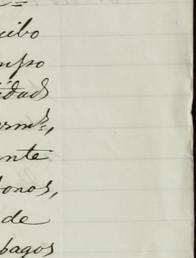 cibo
mpo
idad
erm.s,
ente
onos,
de
pagos